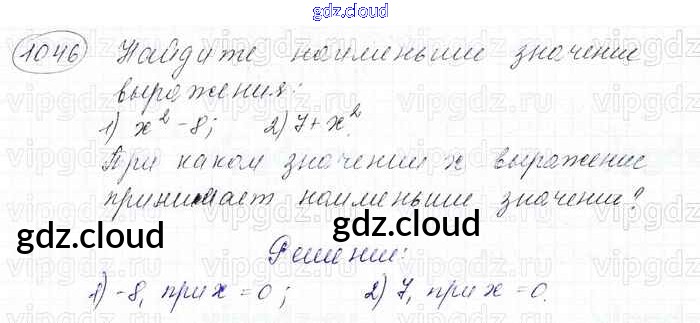 gdz.cloud
1046 Найдите наименьши значение
выражения:
1) x² - 8; 2) 7 + x².
При каком значении x выражение
принимает наименьши значени?
gdz.cloud gdz.cloud
Решени:
1) -8, при x = 0; 2) 7, при x = 0.